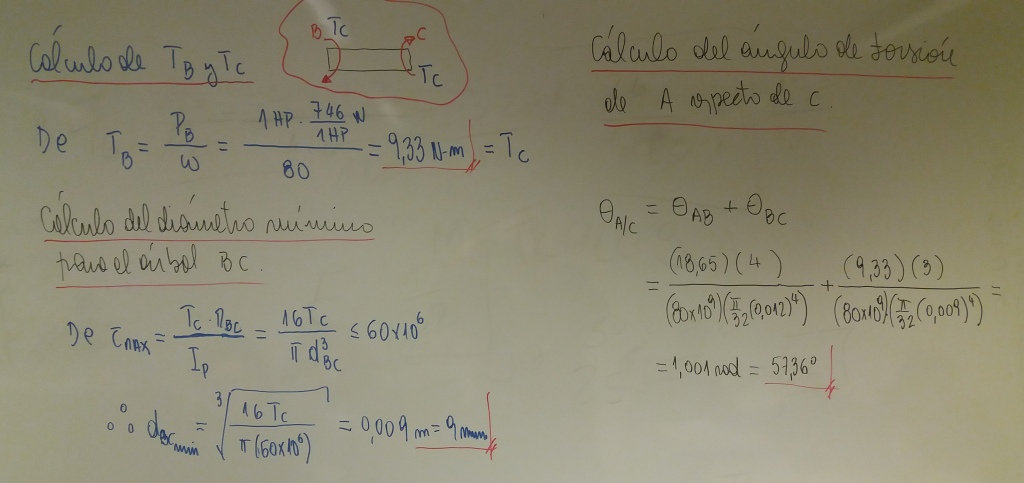 Cálculo de T_B y T_C
B T_C C
T_C
De T_B = P_B / ω = (1 HP · 746 N / 1 HP) / 80 = 9,33 N-m = T_C
Cálculo del diámetro mínimo
para el árbol BC.
De τ_MAX = T_C · r_BC / I_p = 16 T_C / π d_BC^3 ≤ 60x10^6
∴ d_BC min = ∛(16 T_C / π(60x10^6)) = 0,009 m = 9 mm
Cálculo del ángulo de torsión
de A respecto de C.
θ_A/C = θ_AB + θ_BC
= (18,65)(4) / (80x10^9)(π/32 (0,012)^4) + (9,33)(3) / (80x10^9)(π/32 (0,009)^4) =
= 1,001 rad = 57,36°